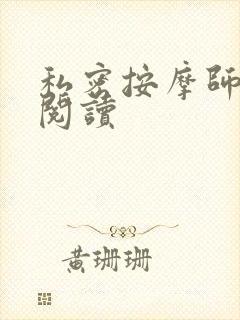 私密按摩師
閱讀
黃珊珊